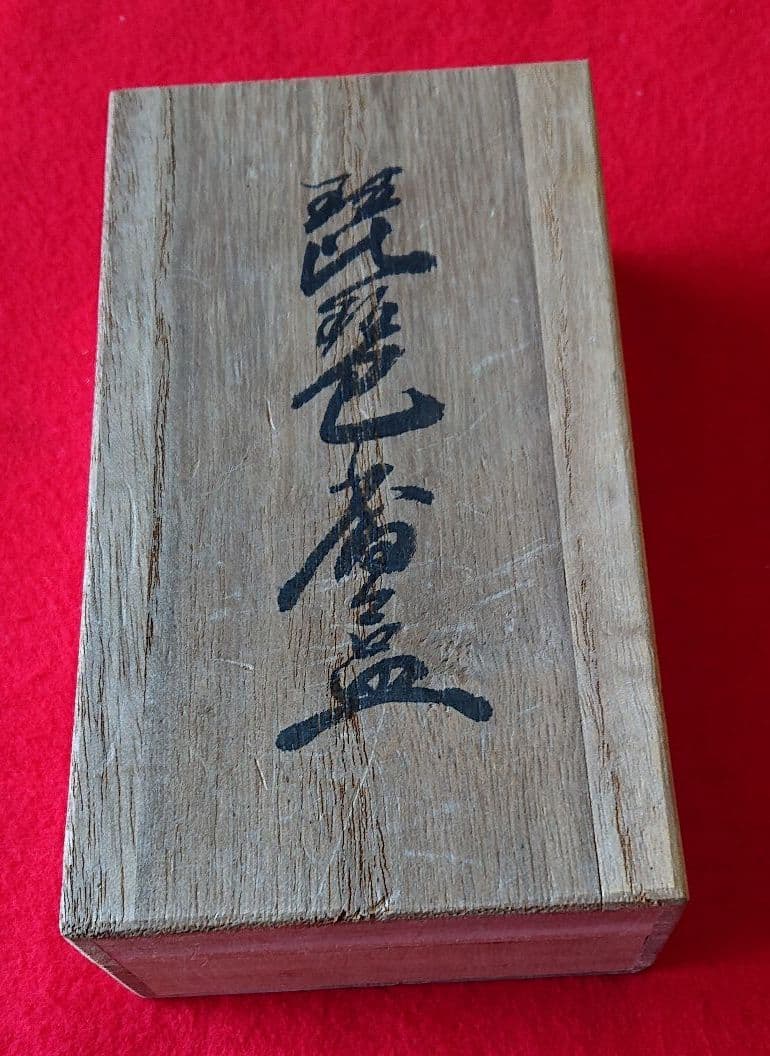 琵琶香盒